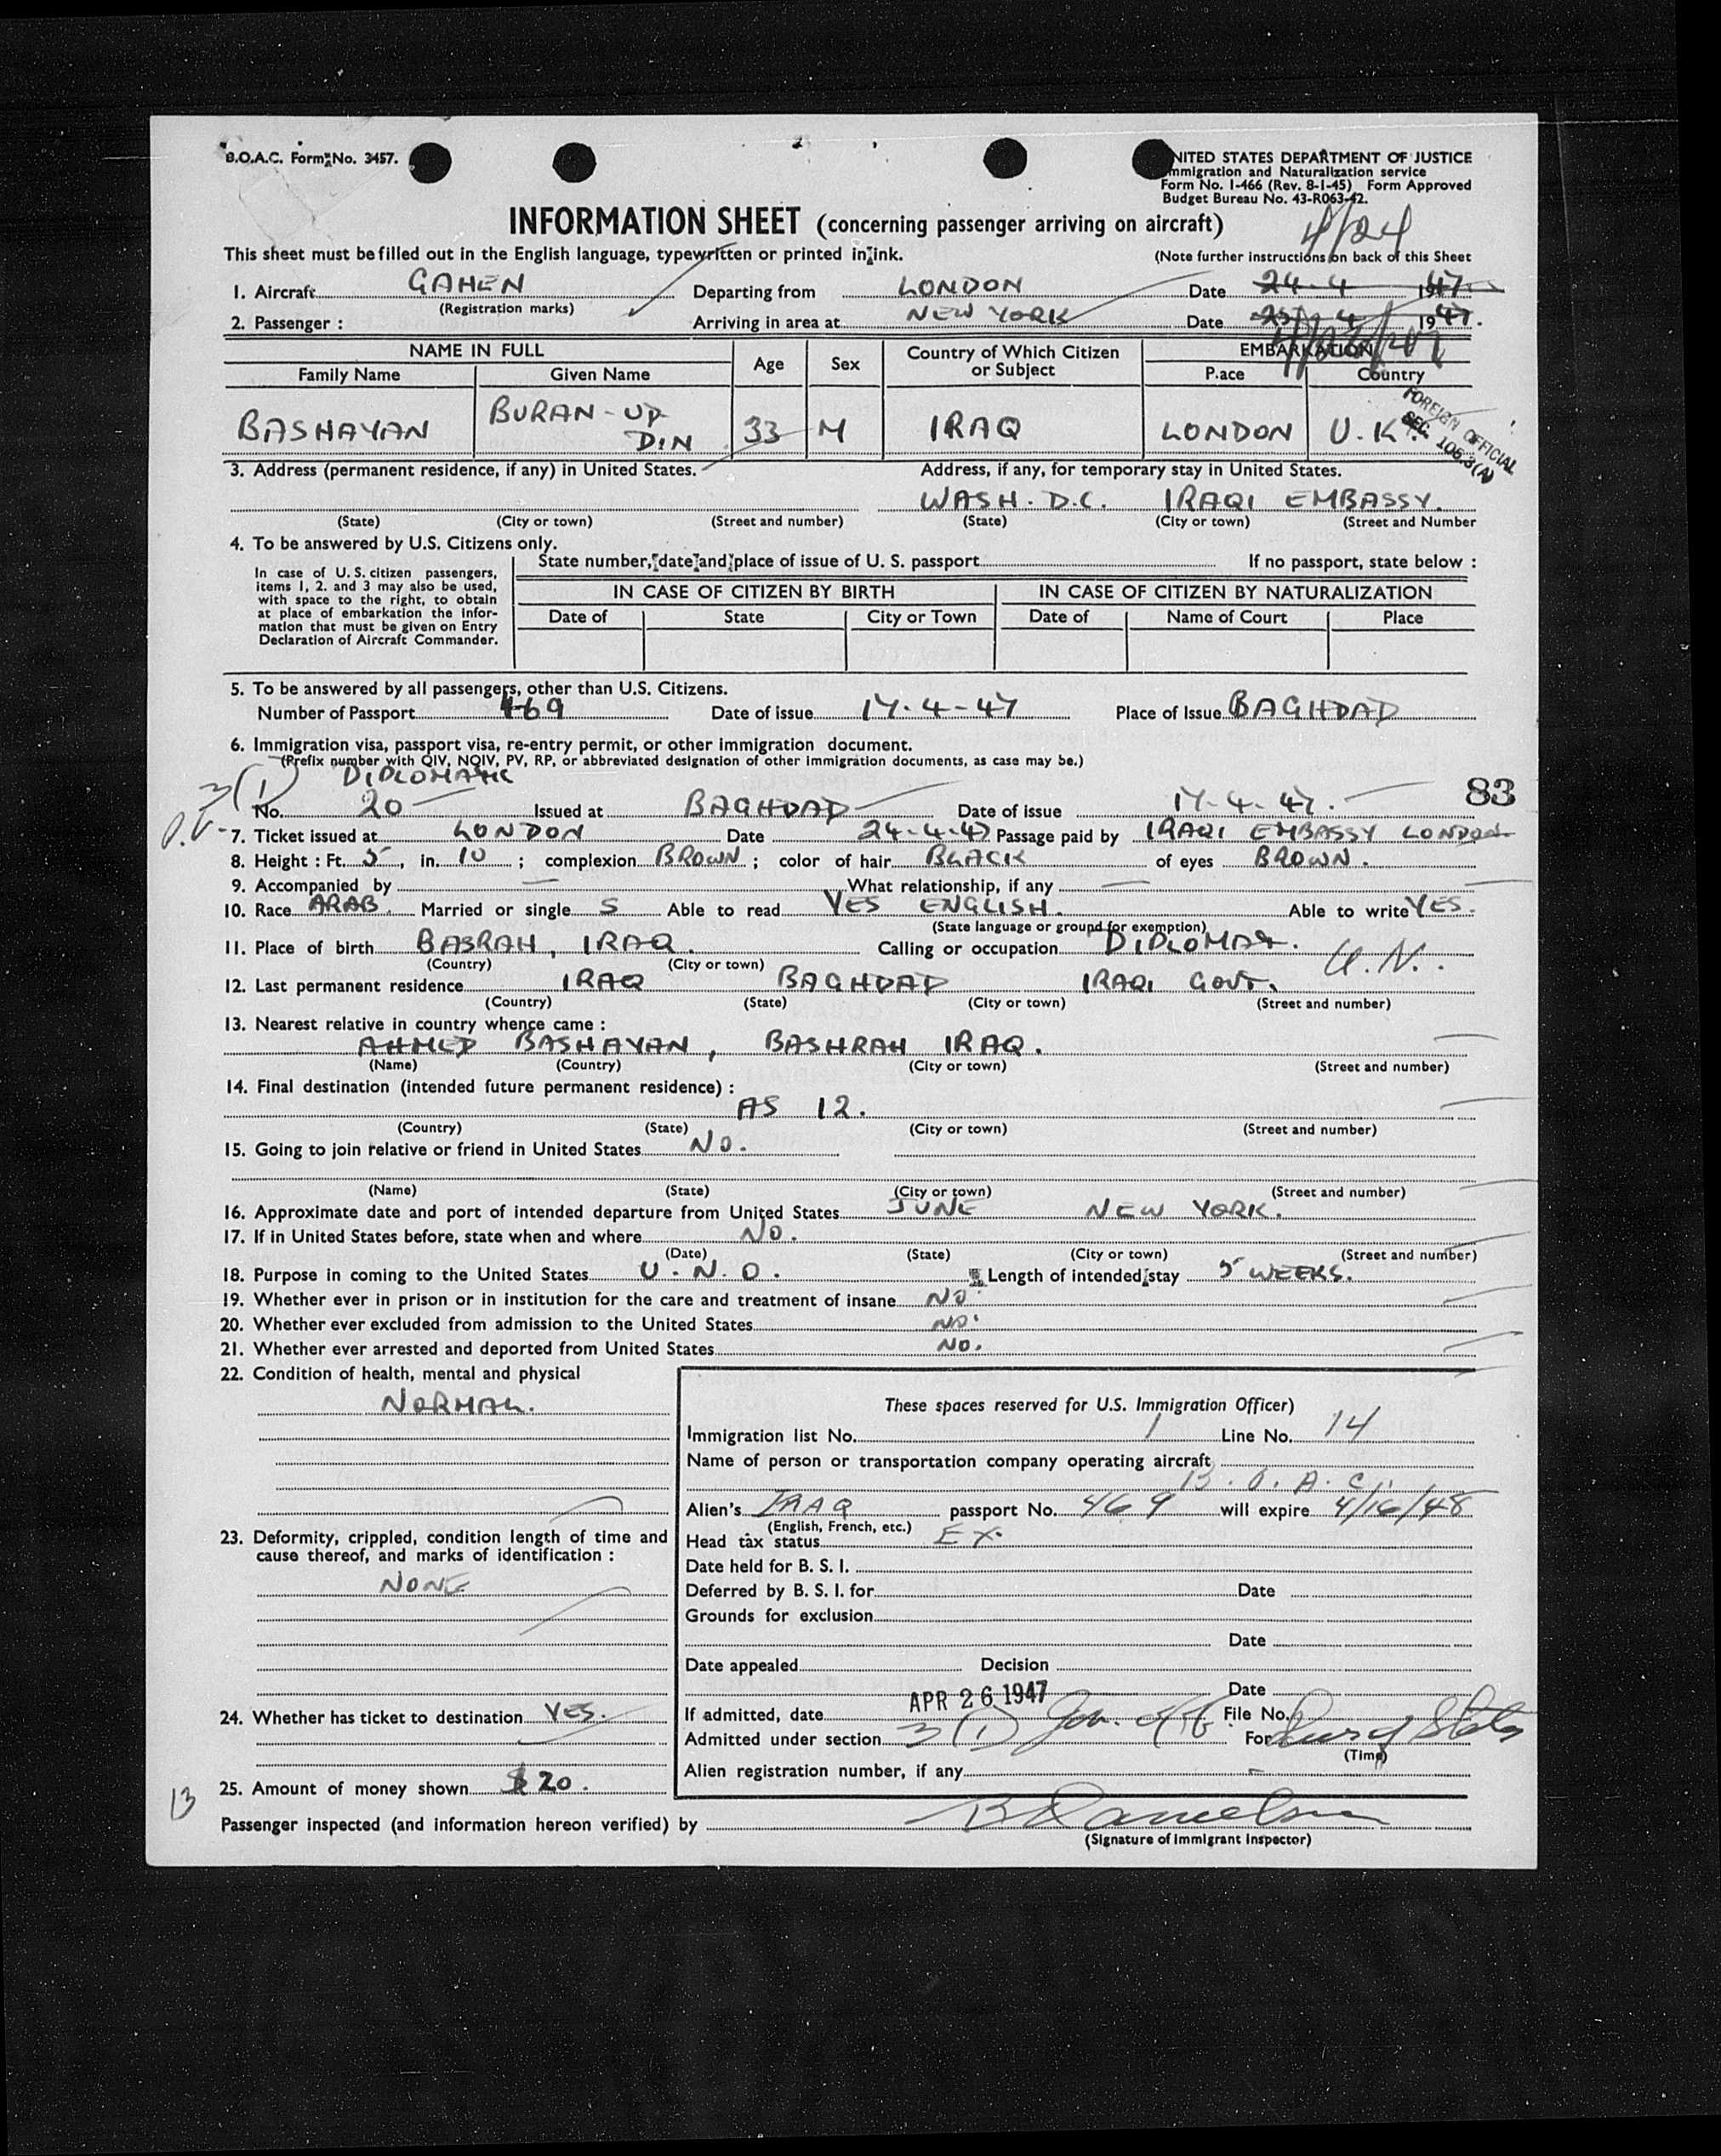 B.O.A.C. Form No. 3457.
UNITED STATES DEPARTMENT OF JUSTICE
Immigration and Naturalization service
Form No. I-466 (Rev. 8-1-45) Form Approved
Budget Bureau No. 43-R063-42.
INFORMATION SHEET (concerning passenger arriving on aircraft)
4/24
This sheet must be filled out in the English language, typewritten or printed in ink. (Note further instructions on back of this Sheet
1. Aircraft GAHEN Departing from LONDON Date 24-4 1947
(Registration marks)
2. Passenger : Arriving in area at NEW YORK Date 25 4 1947.
NAME IN FULL Age Sex Country of Which Citizen or Subject EMBARKATION
Family Name Given Name Place Country
BASHAYAN BURAN-UD-DIN 33 M IRAQ LONDON U.K.
FOREIGN OFFICIAL
SEC. 106.3(A)
3. Address (permanent residence, if any) in United States. Address, if any, for temporary stay in United States.
WASH. D.C. IRAQI EMBASSY.
(State) (City or town) (Street and number) (State) (City or town) (Street and Number
4. To be answered by U.S. Citizens only.
State number, date and place of issue of U. S. passport If no passport, state below :
In case of U. S. citizen passengers,
items 1, 2. and 3 may also be used,
with space to the right, to obtain
at place of embarkation the infor-
mation that must be given on Entry
Declaration of Aircraft Commander.
IN CASE OF CITIZEN BY BIRTH IN CASE OF CITIZEN BY NATURALIZATION
Date of State City or Town Date of Name of Court Place
5. To be answered by all passengers, other than U.S. Citizens.
Number of Passport 469 Date of issue 17-4-47 Place of Issue BAGHDAD
6. Immigration visa, passport visa, re-entry permit, or other immigration document.
(Prefix number with QIV, NQIV, PV, RP, or abbreviated designation of other immigration documents, as case may be.)
3(1) DIPLOMATIC
83
No. 20 Issued at BAGHDAD Date of issue 17-4-47.
P.V-
7. Ticket issued at LONDON Date 24-4-47 Passage paid by IRAQI EMBASSY LONDON
8. Height : Ft. 5, in. 10 ; complexion BROWN ; color of hair BLACK of eyes BROWN.
9. Accompanied by — What relationship, if any —
10. Race ARAB. Married or single S Able to read YES ENGLISH. Able to write YES.
(State language or ground for exemption)
11. Place of birth BASRAH, IRAQ. Calling or occupation DIPLOMAT. U.N.
(Country) (City or town)
12. Last permanent residence IRAQ BAGHDAD IRAQI GOVT.
(Country) (State) (City or town) (Street and number)
13. Nearest relative in country whence came :
AHMED BASHAYAN, BASHRAH IRAQ.
(Name) (Country) (City or town) (Street and number)
14. Final destination (intended future permanent residence) :
AS 12.
(Country) (State) (City or town) (Street and number)
15. Going to join relative or friend in United States NO.
(Name) (State) (City or town) (Street and number)
16. Approximate date and port of intended departure from United States JUNE NEW YORK.
17. If in United States before, state when and where NO.
(Date) (State) (City or town) (Street and number)
18. Purpose in coming to the United States U.N.O. Length of intended stay 5 WEEKS.
19. Whether ever in prison or in institution for the care and treatment of insane NO.
20. Whether ever excluded from admission to the United States NO.
21. Whether ever arrested and deported from United States NO.
22. Condition of health, mental and physical
NORMAL.
These spaces reserved for U.S. Immigration Officer)
Immigration list No. 1 Line No. 14
Name of person or transportation company operating aircraft
B.O.A.C.
Alien's IRAQ passport No. 469 will expire 4/16/48
(English, French, etc.)
23. Deformity, crippled, condition length of time and
cause thereof, and marks of identification :
NONE
Head tax status EX.
Date held for B. S. I.
Deferred by B. S. I. for Date
Grounds for exclusion
Date
Date appealed Decision
Date
24. Whether has ticket to destination YES.
If admitted, date APR 26 1947 File No.
Admitted under section 3(1) For
(Time)
Alien registration number, if any -
25. Amount of money shown $20.
13
Passenger inspected (and information hereon verified) by
(Signature of Immigrant Inspector)